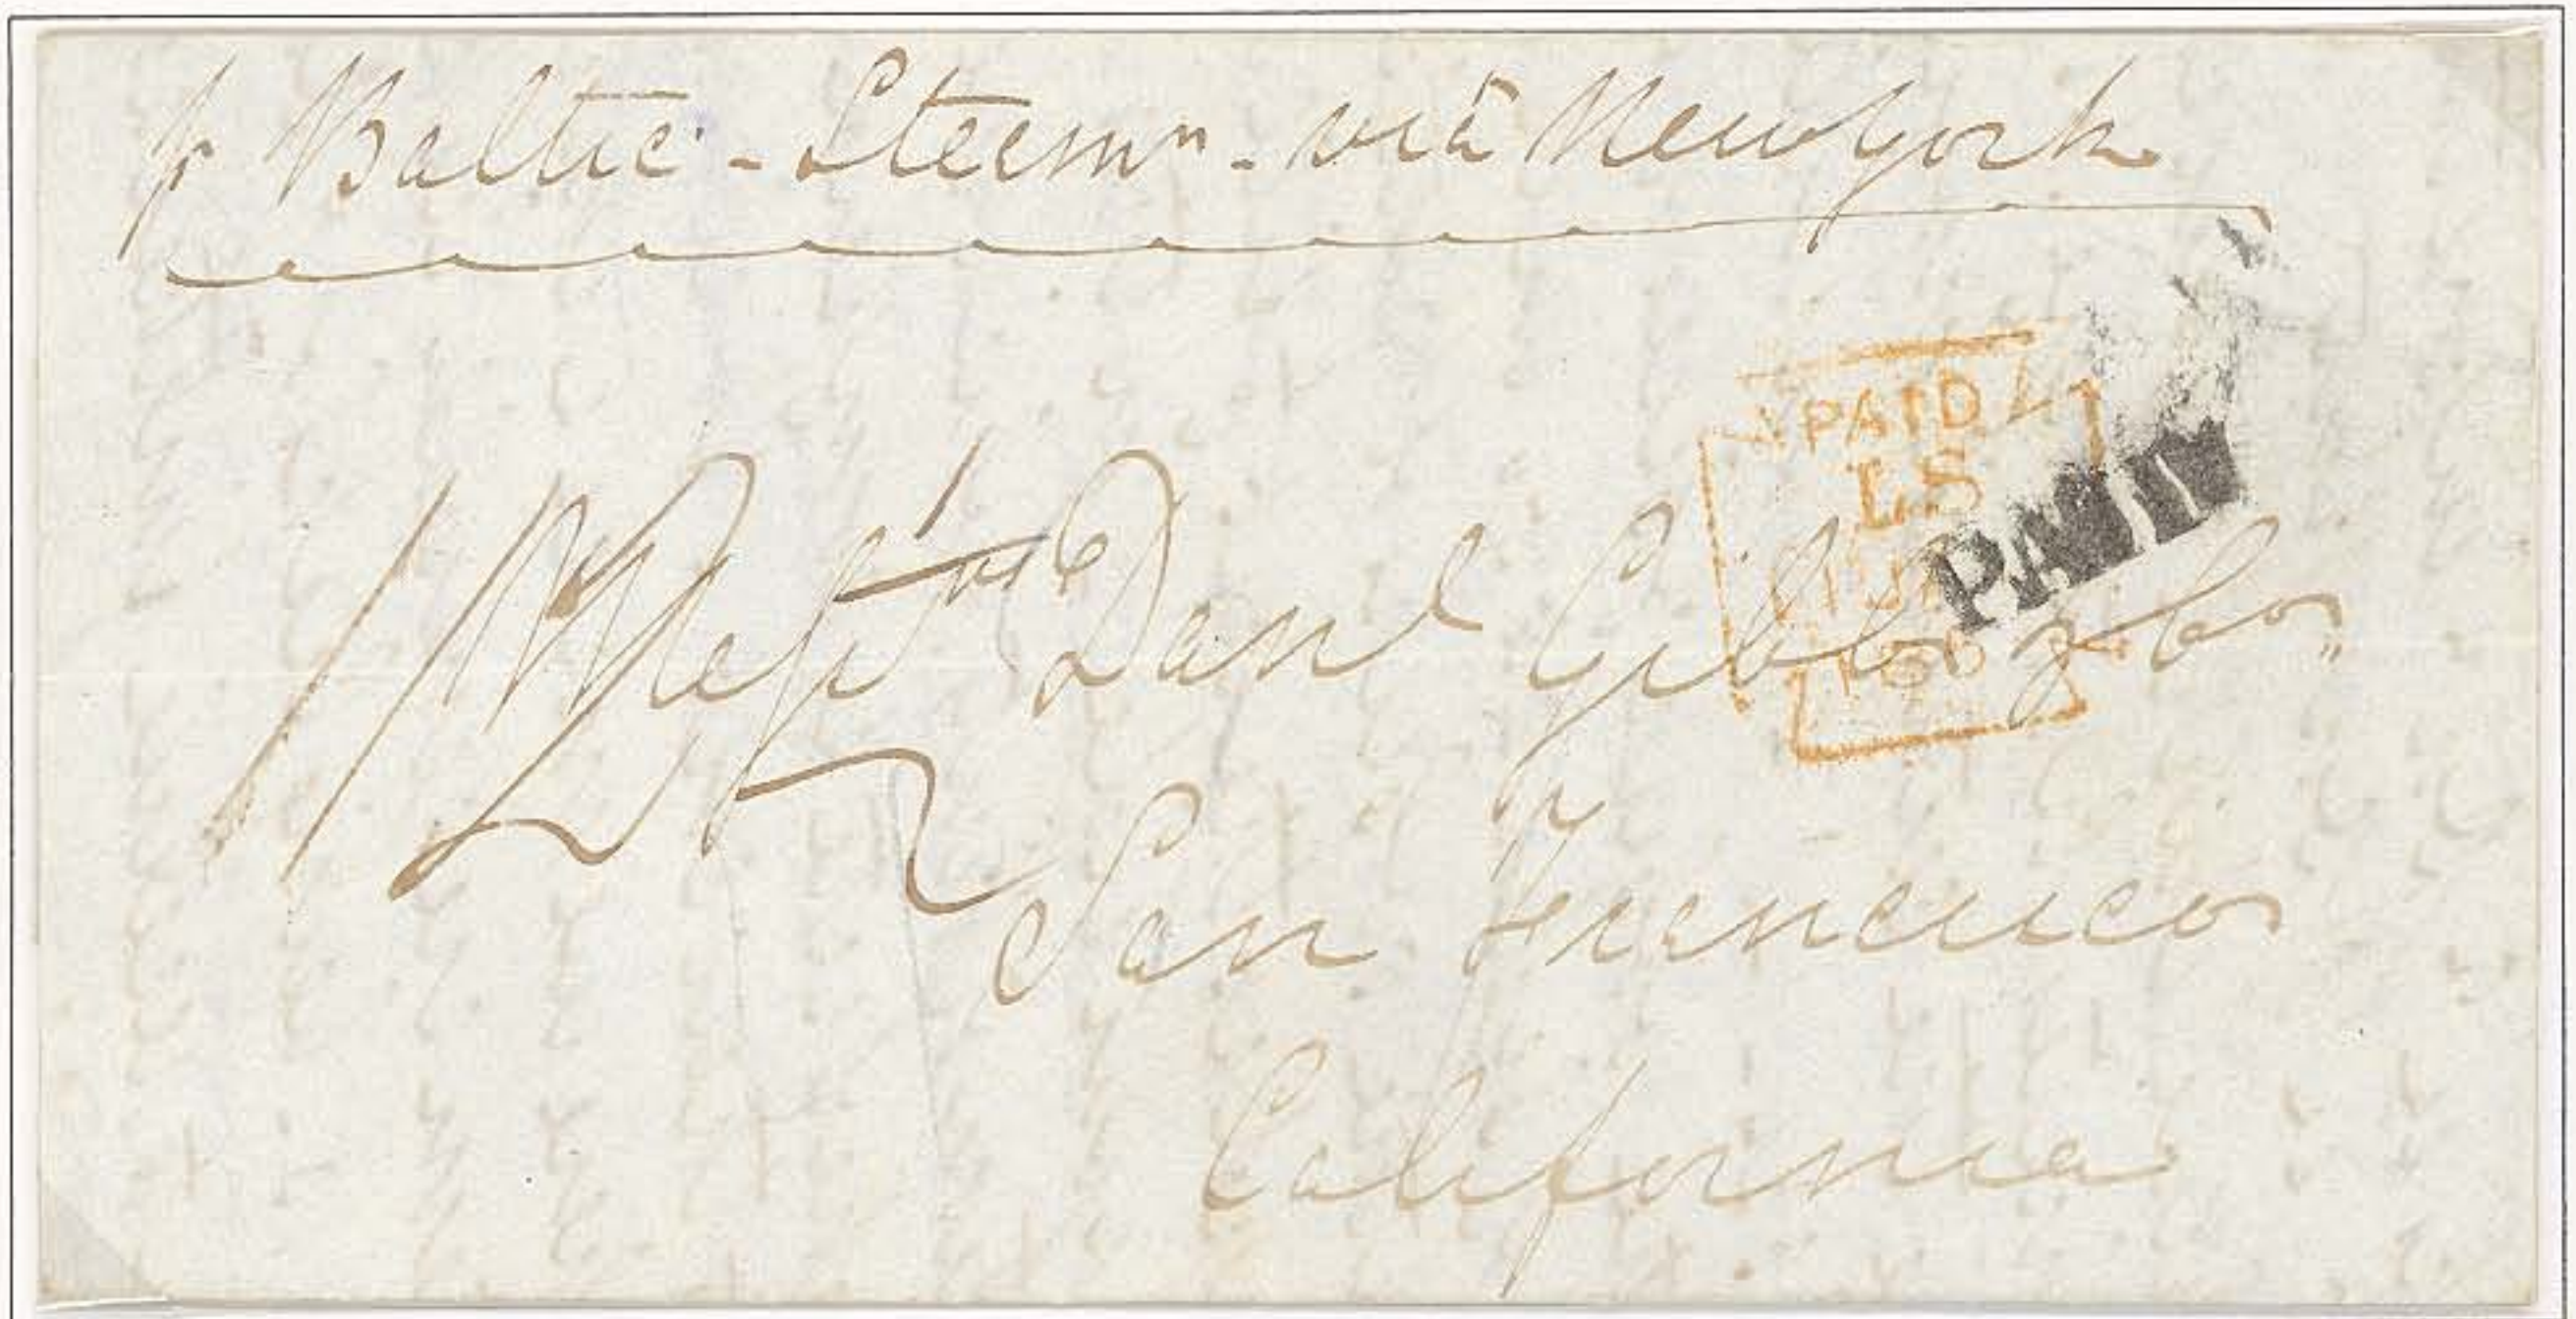 p Baltic - Steamr - via New York
PAID
LS
PAID
Messrs Danl Gibb & Co,,
San Francisco
California